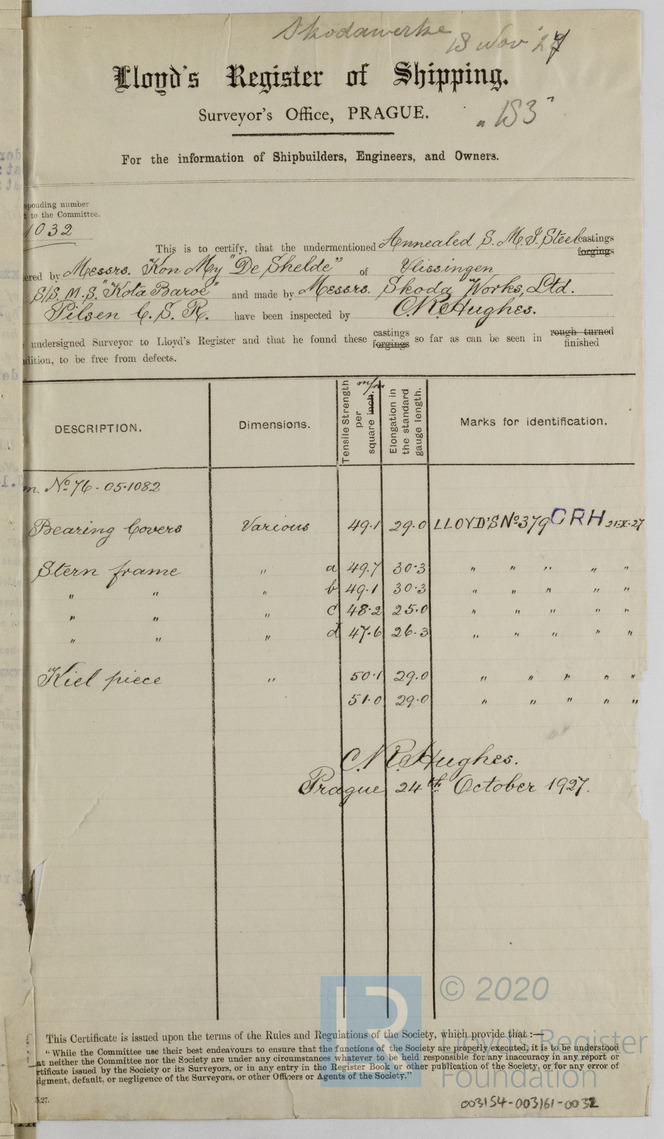 Skodawerke 18 Nov '27
Lloyd's Register of Shipping.
Surveyor's Office, PRAGUE. "153"
For the information of Shipbuilders, Engineers, and Owners.
sponding number
to the Committee.
1032
This is to certify, that the undermentioned Annealed S. M. I. Steel castings
forgings
ered by Messrs. Kon My "De Shelde" of Vlissingen
S/S. M.S. "Kota Baroe" and made by Messrs. Skoda Works, Ltd.
Pilsen C. S. R. have been inspected by C.R. Hughes.
undersigned Surveyor to Lloyd's Register and that he found these castings forgings so far as can be seen in rough turned finished
dition, to be free from defects.
DESCRIPTION. Dimensions. Tensile Strength per square inch. m/m Elongation in the standard gauge length. Marks for identification.
No 76-05-1082
Bearing Covers Various 49.1 29.0 LLOYD'S No 379 CRH 21-X-27
Stern frame " a 49.7 30.3 " " " " "
" " " b 49.1 30.3 " " " " "
" " " c 48.2 25.0 " " " " "
" " " d 47.6 26.3 " " " " "
Kiel piece " 50.1 29.0 " " " " "
51.0 29.0 " " " " "
C.R. Hughes.
Prague 24th October 1927.
This Certificate is issued upon the terms of the Rules and Regulations of the Society, which provide that :—
"While the Committee use their best endeavours to ensure that the functions of the Society are properly executed, it is to be understood
at neither the Committee nor the Society are under any circumstances whatever to be held responsible for any inaccuracy in any report or
rtificate issued by the Society or its Surveyors, or in any entry in the Register Book or other publication of the Society, or for any error of
dgment, default, or negligence of the Surveyors, or other Officers or Agents of the Society."
© 2020
Lloyd's Register
Foundation
003154-003161-0032